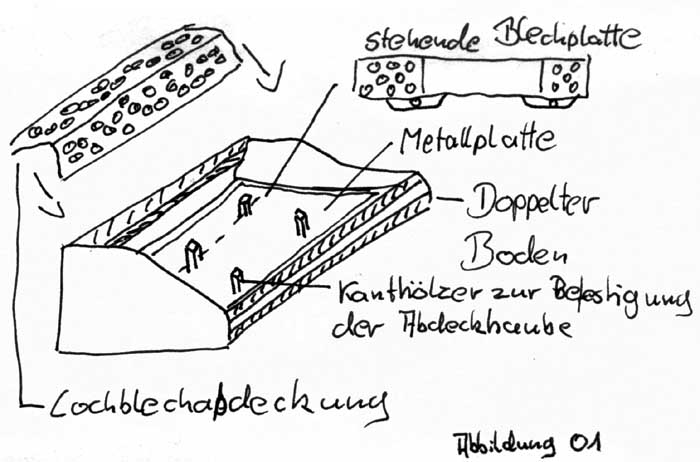 stehende Blechplatte
Metallplatte
Doppelter
Boden
Kanthölzer zur Befestigung
der Abdeckhaube
Lochblechabdeckung
Abbildung 01